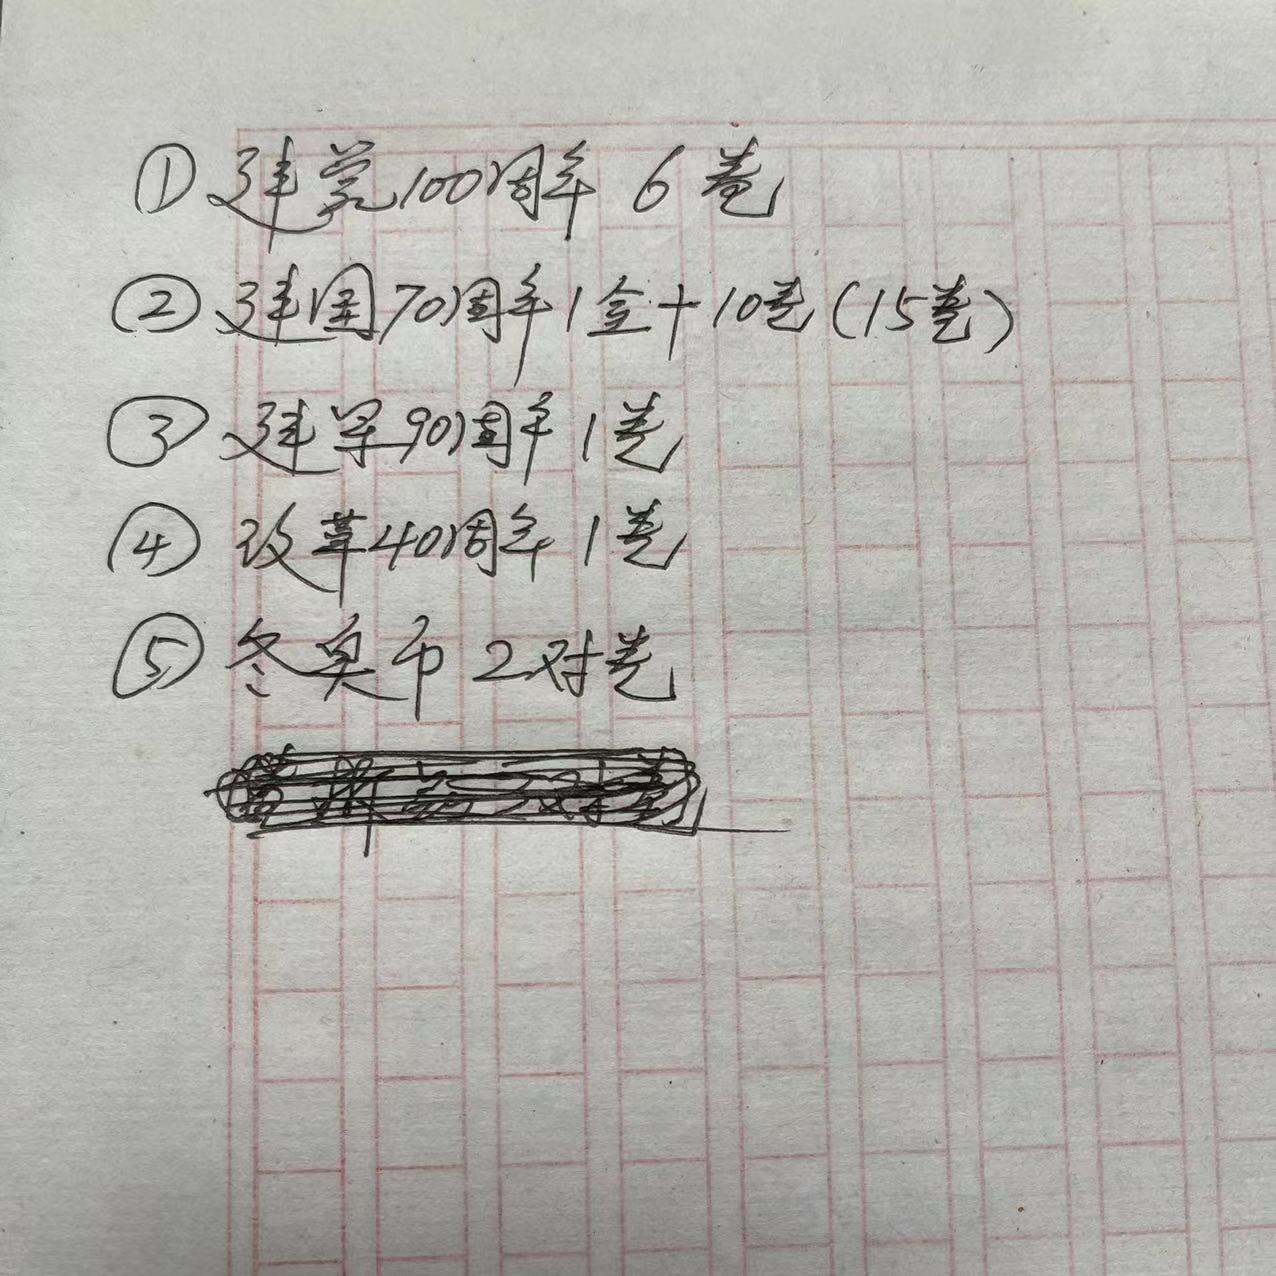 ① 建党100周年 6卷
② 建国70周年1盒+10卷(15卷)
③ 建军90周年1卷
④ 改革40周年1卷
⑤ 冬奥币2对卷